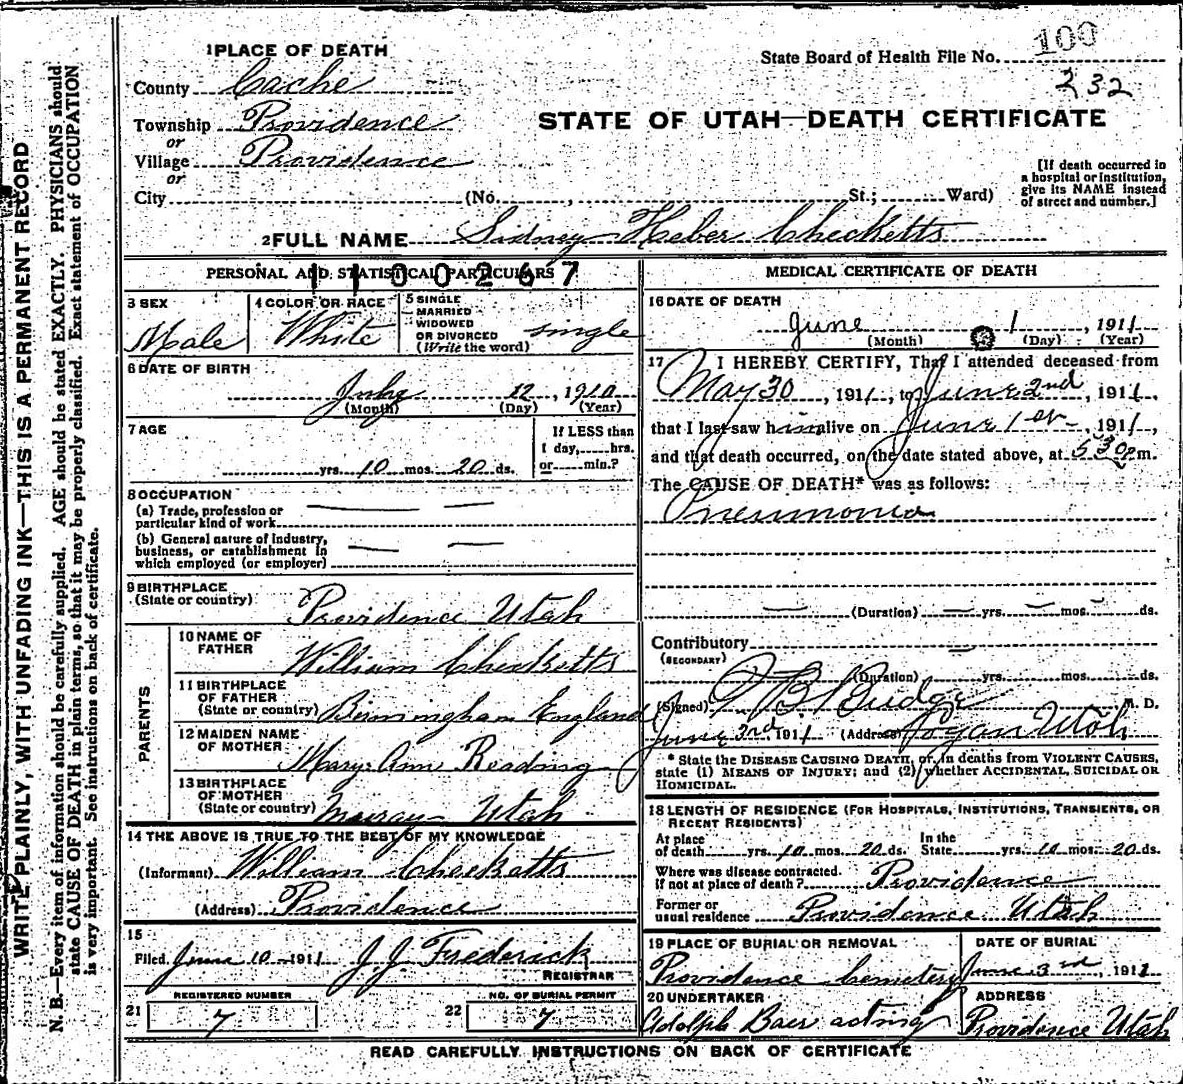 WRITE PLAINLY, WITH UNFADING INK—THIS IS A PERMANENT RECORD
N. B.—Every item of information should be carefully supplied. AGE should be stated EXACTLY. PHYSICIANS should
state CAUSE OF DEATH in plain terms, so that it may be properly classified. Exact statement of OCCUPATION
is very important. See instructions on back of certificate.
1 PLACE OF DEATH
County Cache
Township Providence
or
Village Providence
or
City (No. , St.; Ward)
State Board of Health File No. 100
232
STATE OF UTAH—DEATH CERTIFICATE
[If death occurred in
a hospital or institution,
give its NAME instead
of street and number.]
2 FULL NAME Sidney Heber Checketts
PERSONAL AND STATISTICAL PARTICULARS
1100267
3 SEX
Male
4 COLOR OR RACE
White
5 SINGLE
MARRIED
WIDOWED
OR DIVORCED
(Write the word)
single
6 DATE OF BIRTH
July 12, 1910
(Month) (Day) (Year)
7 AGE
yrs. 10 mos. 20 ds.
If LESS than
1 day, hrs.
or min.?
8 OCCUPATION
(a) Trade, profession or
particular kind of work
(b) General nature of industry,
business, or establishment in
which employed (or employer)
9 BIRTHPLACE
(State or country)
Providence Utah
PARENTS
10 NAME OF
FATHER
William Checketts
11 BIRTHPLACE
OF FATHER
(State or country) Birmingham England
12 MAIDEN NAME
OF MOTHER
Mary Ann Reading
13 BIRTHPLACE
OF MOTHER
(State or country) Murray Utah
14 THE ABOVE IS TRUE TO THE BEST OF MY KNOWLEDGE
(Informant) William Checketts
(Address) Providence
15
Filed June 10-1911 J. J. Frederick
REGISTRAR
REGISTERED NUMBER
21 7
NO. OF BURIAL PERMIT
22 7
MEDICAL CERTIFICATE OF DEATH
16 DATE OF DEATH
June 1, 1911
(Month) (Day) (Year)
17 I HEREBY CERTIFY, That I attended deceased from
May 30, 1911, to June 2nd, 1911,
that I last saw him alive on June 1st, 1911,
and that death occurred, on the date stated above, at 5:30 p m.
The CAUSE OF DEATH* was as follows:
Pneumonia
(Duration) yrs. mos. ds.
Contributory
(SECONDARY)
(Duration) yrs. mos. ds.
(Signed) Budge M. D.
June 3rd, 1911 (Address) Logan Utah
* State the DISEASE CAUSING DEATH, or, in deaths from VIOLENT CAUSES,
state (1) MEANS OF INJURY; and (2) whether ACCIDENTAL, SUICIDAL OR
HOMICIDAL.
18 LENGTH OF RESIDENCE (FOR HOSPITALS, INSTITUTIONS, TRANSIENTS, OR
RECENT RESIDENTS)
At place
of death yrs. 10 mos. 20 ds.
In the
State yrs. 10 mos. 20 ds.
Where was disease contracted,
if not at place of death? Providence
Former or
usual residence Providence Utah
19 PLACE OF BURIAL OR REMOVAL
Providence Cemetery
DATE OF BURIAL
June 3rd, 1911
20 UNDERTAKER
Adolph Baer acting
ADDRESS
Providence Utah
READ CAREFULLY INSTRUCTIONS ON BACK OF CERTIFICATE